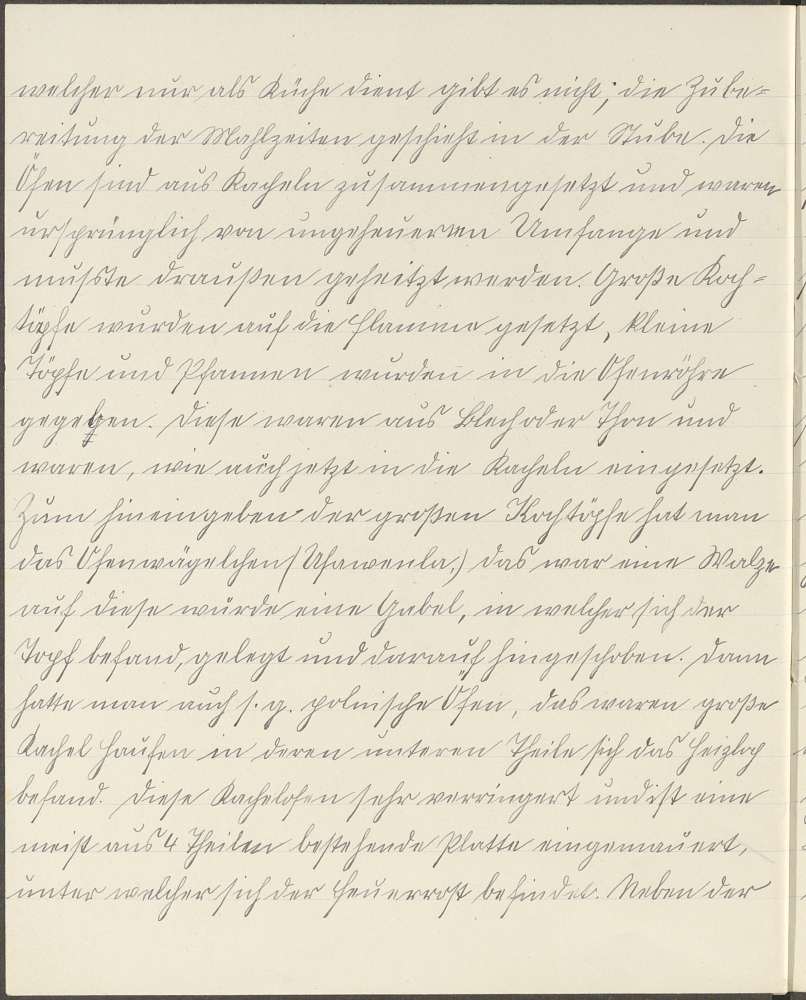 welcher nur als Küche dient gibt es nicht; die Zube-
reitung der Mahlzeiten geschieht in der Stube. Die
Öfen sind aus Kacheln zusammengesetzt und waren
ursprünglich von ungeheueren Umfange und
musste draußen geheitzt werden. Große Koch-
töpfe wurden auf die Flamme gesetzt, kleine
Töpfe und Pfannen wurden in die Ofenröhre
gegeben. Diese waren aus Blech oder Thon und
waren, wie auch jetzt in die Kacheln eingesetzt.
Zum hineingeben der großen Kochtöpfe hat man
das Ofenwägelchen (Ufawenla.) das war eine Walze
auf diese wurde eine Gabel, in welcher sich der
Topf befand, gelegt und darauf hingeschoben. Dann
hatte man auch s. g. polnische Öfen, das waren große
Kachel haufen in deren unteren Theile sich das Heizloch
befand. Diese Kachelofen sehr verringert und ist eine
meist aus 4 Theilen bestehende Platte eingemauert,
unter welcher sich der Feuerrost befindet. Neben der